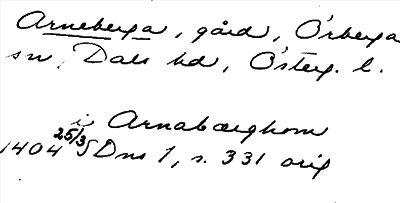 Arneberga, gård, Örberga
sn, Dals hd, Österg. l.
i Arnabærghom
1404 25/3 SDns 1, s. 331 orig